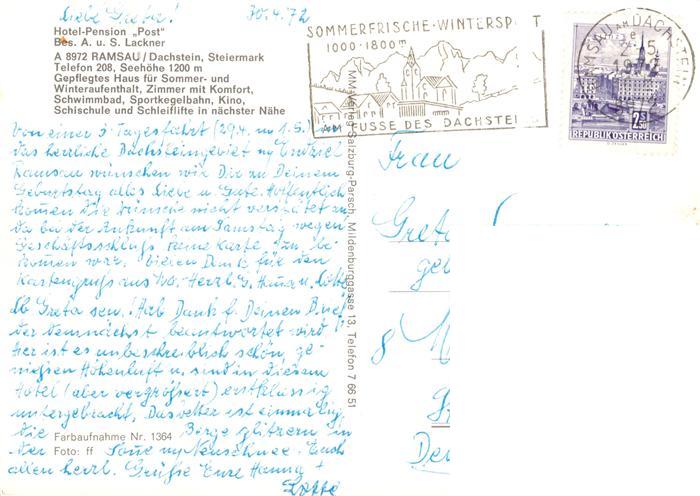 Liebe Greta! 30.4.72
Hotel-Pension „Post"
Bes. A. u. S. Lackner
A 8972 RAMSAU/Dachstein, Steiermark
Telefon 208, Seehöhe 1200 m
Gepflegtes Haus für Sommer- und
Winteraufenthalt, Zimmer mit Komfort,
Schwimmbad, Sportkegelbahn, Kino,
Schischule und Schleiflifte in nächster Nähe
Von einer 3 Tagesfahrt (29.4. - 1.5.) in
das herrliche Dachsteingebiet Endziel
Ramsau wünschen wir Dir zu Deinem
Geburtstag alles Liebe u. Gute. Hoffentlich
kommen die Wünsche nicht verspätet an
da bei der Ankunft am Samstag wegen
Geschäftsschluß keine Karte zu be-
kommen war. Vielen Dank für den
Kartengruß aus Herzl. G. u. Lotte
Lb Greta sen.! Hab Dank f. Deinen Brief
der demnächst beantwortet wird
Hier ist es unbeschreiblich schön, ge-
nießen Höhenluft u. sind in diesem
Hotel (aber vergrößert) erstklassig
untergebracht. Das Wetter ist einmalig,
die Berge glitzern in
der Sonne Neuschnee. Euch
allen herzl. Grüße Eure Hanna +
Lotte
Farbaufnahme Nr. 1364
Foto: ff
Salzburg-Parsch, Mildenburggasse 13, Telefon 7 66 51
SOMMERFRISCHE · WINTERSPORT
1000-1800 m
AM FUSSE DES DACHSTEIN
RAMSAU AM DACHSTEIN
2.50
REPUBLIK ÖSTERREICH
Frau
Greta
geb
8